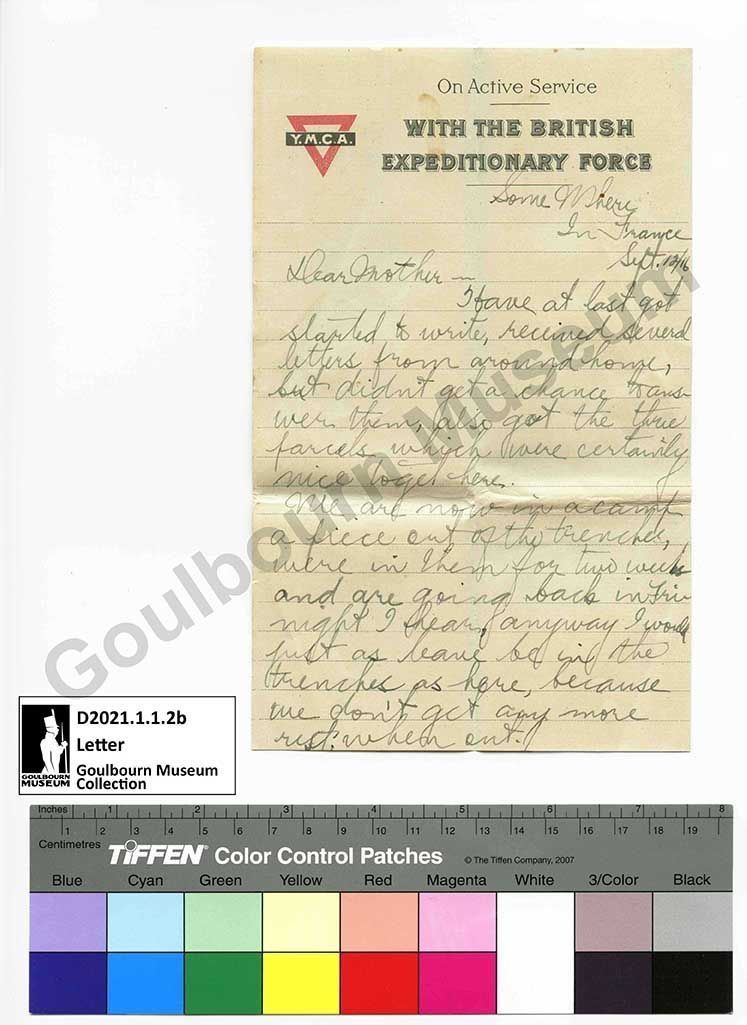 On Active Service
Y.M.C.A.
WITH THE BRITISH
EXPEDITIONARY FORCE
Some Where
In France
Sept. 12/16
Dear Mother —
Have at last got
started to write, received several
letters from around home,
but didn't get a chance to ans-
wer them, also got the three
parcels which were certainly
nice to get here.
We are now in a camp
a piece out of the trenches,
were in them for two weeks
and are going back in Fri-
night I hear, anyway I would
just as leave be in the
trenches as here, because
we don't get any more
rest when out.
Goulbourn Museum
D2021.1.1.2b
Letter
Goulbourn Museum
Collection
GOULBOURN
MUSEUM
Inches 1 2 3 4 5 6 7 8
Centimetres 1 2 3 4 5 6 7 8 9 10 11 12 13 14 15 16 17 18 19
TIFFEN® Color Control Patches © The Tiffen Company, 2007
Blue Cyan Green Yellow Red Magenta White 3/Color Black